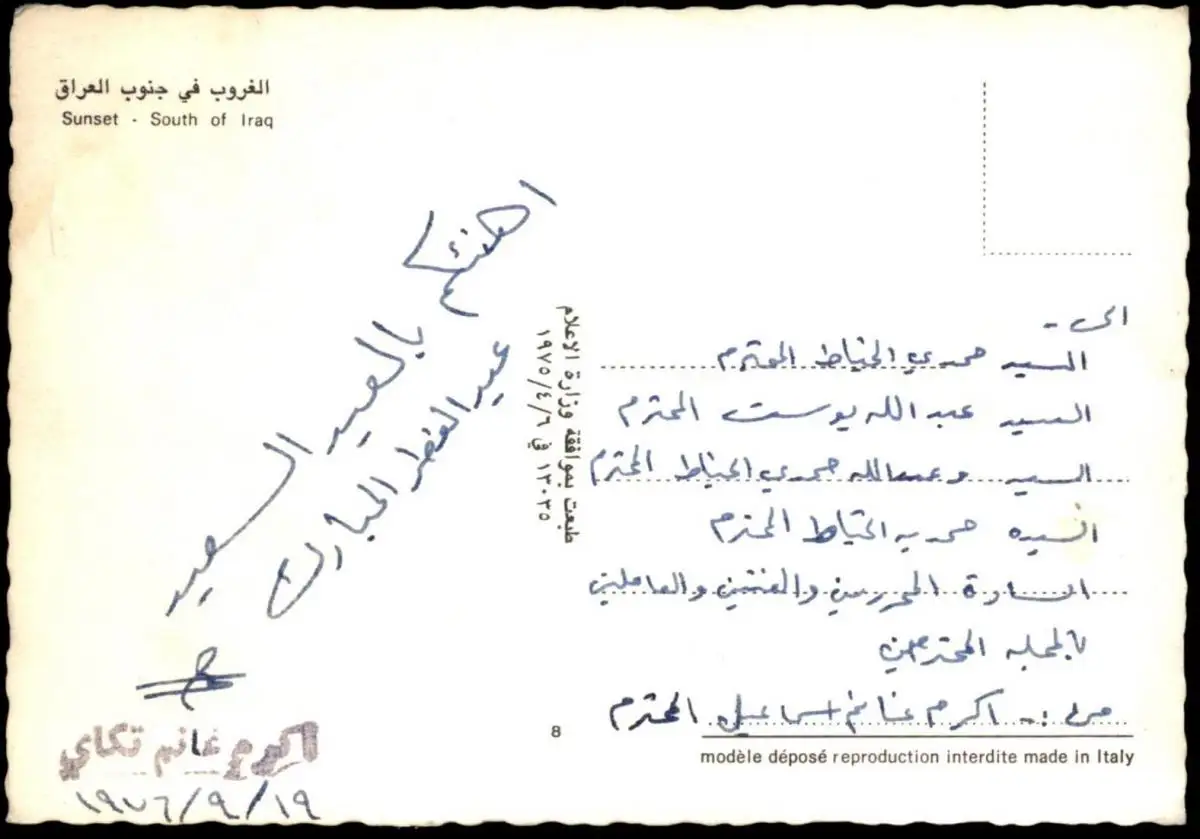 الغروب في جنوب العراق
Sunset - South of Iraq
اهنئكم بالعيد السعيد
عيد الفطر المبارك
اكرم غانم تكاي
١٩٧٦/٩/١٩
طبعت بموافقة وزارة الاعلام
١٣٠٣٥ في ١٩٧٥/٤/٦
الى -
السيد حمدي الخياط المحترم
السيد عبد الله يوسف المحترم
السيد وعبدالله حمدي الخياط المحترم
السيده حمديه الخياط المحترم
السادة المحررين والفنيين والعاملين
بالمجله المحترمين
من :- اكرم غانم اسماعيل المحترم
8
modèle déposé reproduction interdite made in Italy